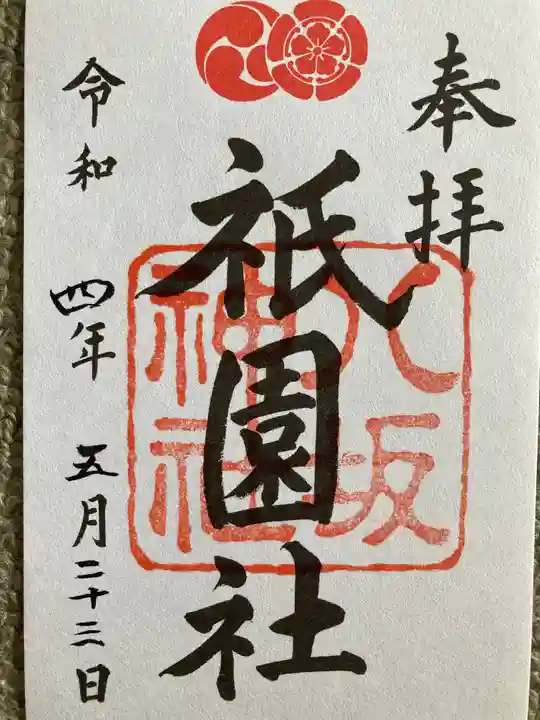 奉拝
八坂
神社
祇園社
令和 四年 五月二十三日